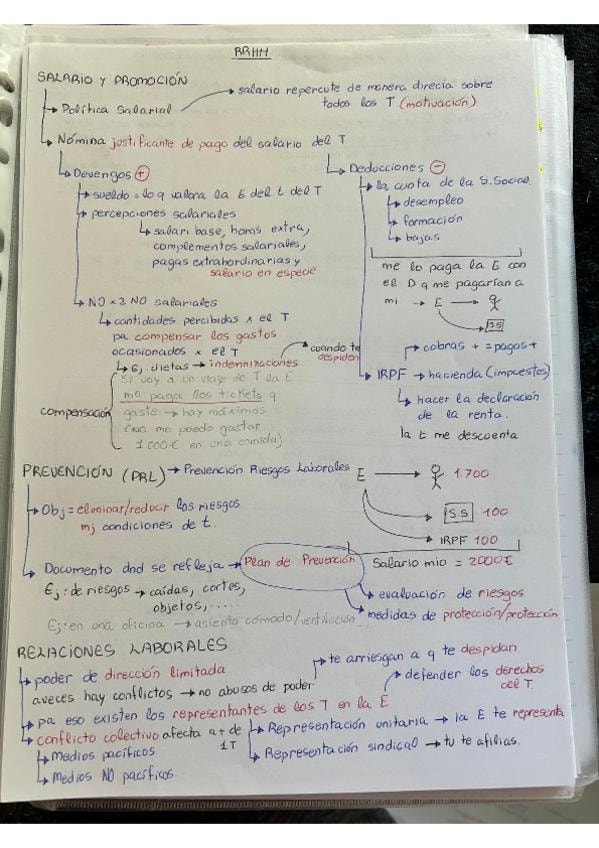 RRHH
SALARIO Y PROMOCIÓN
→ Política Salarial → salario repercute de manera directa sobre
todos los T (motivación)
→ Nómina justificante de pago del salario del T
→ Devengos +
→ sueldo = lo q valora la E del t del T
→ percepciones salariales
→ salari base, horas extra,
complementos salariales,
pagas extrahordinarias y
salario en especie
→ NO x 2 NO salariales
→ cantidades percibidas x el T
pa compensar los gastos
ocasionados x el T
→ Ej. dietas → indemnizaciones → cuando te
despiden
compensación
Si voy a un viaje de T la E
me paga los tickets q
gaste → hay máximos
(no me puedo gastar
1000€ en una comida)
→ Deducciones -
→ la cuota de la S.Social
→ desempleo
→ formación
→ bajas
me lo paga la E con
el D q me pagarían a
mi → E →
S.S
→ cobras + = pagas +
→ IRPF → hacienda (impuestos)
→ hacer la declaración
de la renta.
la E me descuenta
E → 1.700
→ S.S 100
→ IRPF 100
Salario mio = 2000€
PREVENCIÓN (PRL) → Prevención Riesgos Laborales
→ Obj = eliminar/reducir los riesgos
mj condiciones de t.
→ Documento dnd se refleja → Plan de Prevención
Ej: de riesgos → caídas, cortes,
objetos, ....
Ej: en una oficina → asiento cómodo/ventilación...
→ evaluación de riesgos
→ medidas de protección/protección
RELACIONES LABORALES
→ poder de dirección limitada
aveces hay conflictos → no abusos de poder → te arriesgan a q te despidan
→ pa eso existen los representantes de los T en la E → defender los derechos
del T.
→ conflicto colectivo afecta a + de
1T
→ Medios pacíficos
→ Medios NO pacíficos.
→ Representación unitaria → la E te representa
→ Representación sindical → tu te afilias.